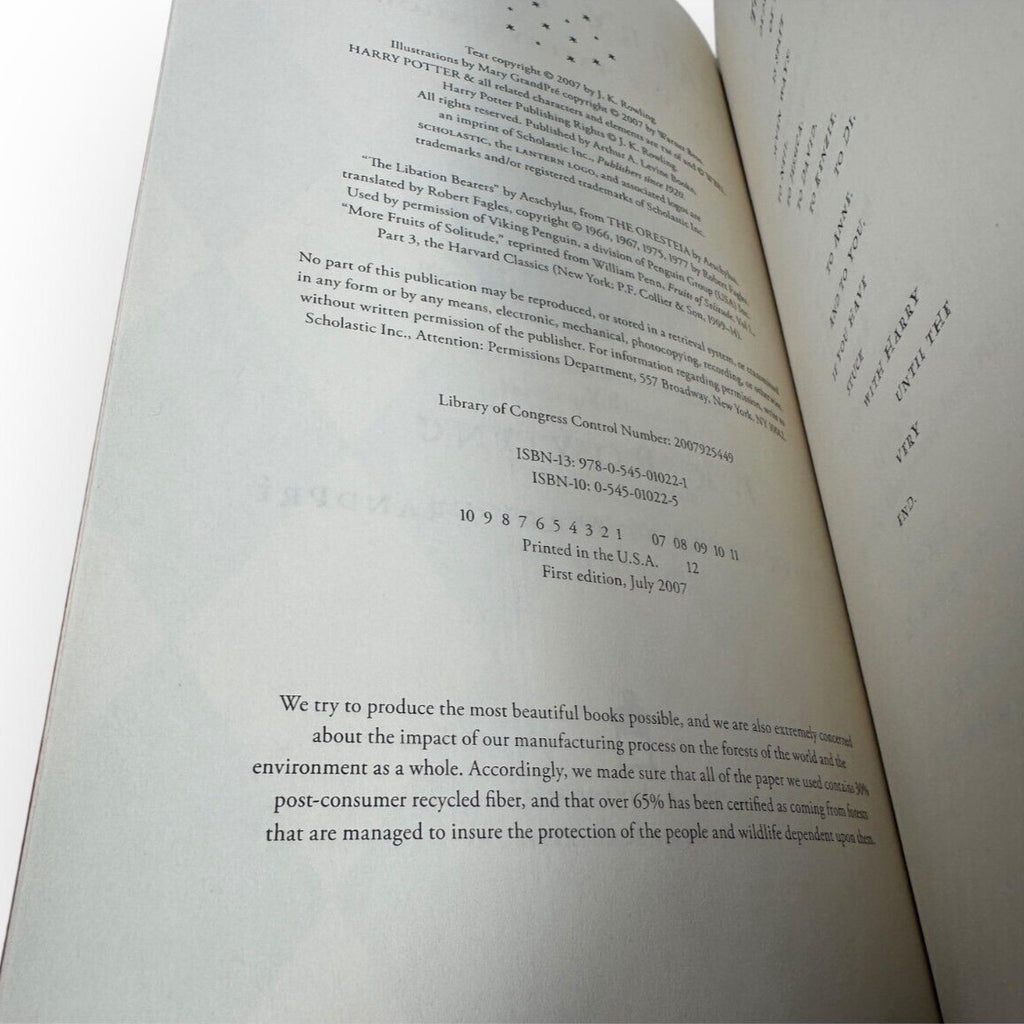 Text copyright © 2007 by J. K. Rowling
Illustrations by Mary GrandPré copyright © 2007 by Warner Bros.
HARRY POTTER & all related characters and elements are TM of and © WBEI.
Harry Potter Publishing Rights © J. K. Rowling.
All rights reserved. Published by Arthur A. Levine Books,
an imprint of Scholastic Inc., Publishers since 1920.
SCHOLASTIC, the LANTERN LOGO, and associated logos are
trademarks and/or registered trademarks of Scholastic Inc.
“The Libation Bearers” by Aeschylus, from THE ORESTEIA by Aeschylus,
translated by Robert Fagles, copyright © 1966, 1967, 1975, 1977 by Robert Fagles.
Used by permission of Viking Penguin, a division of Penguin Group (USA) Inc.
“More Fruits of Solitude,” reprinted from William Penn, Fruits of Solitude, Vol. I.,
Part 3, the Harvard Classics (New York: P.F. Collier & Son, 1909–14).
No part of this publication may be reproduced, or stored in a retrieval system, or transmitted
in any form or by any means, electronic, mechanical, photocopying, recording, or otherwise,
without written permission of the publisher. For information regarding permission, write to
Scholastic Inc., Attention: Permissions Department, 557 Broadway, New York, NY 10012.
Library of Congress Control Number: 2007925449
ISBN-13: 978-0-545-01022-1
ISBN-10: 0-545-01022-5
10 9 8 7 6 5 4 3 2 1 07 08 09 10 11
Printed in the U.S.A. 12
First edition, July 2007
We try to produce the most beautiful books possible, and we are also extremely concerned
about the impact of our manufacturing process on the forests of the world and the
environment as a whole. Accordingly, we made sure that all of the paper we used contains 30%
post-consumer recycled fiber, and that over 65% has been certified as coming from forests
that are managed to insure the protection of the people and wildlife dependent upon them.
TO NEIL,
TO JESSICA,
TO DAVID,
TO KENZIE,
TO DI,
TO ANNE,
AND TO YOU,
IF YOU HAVE
STUCK
WITH HARRY
UNTIL THE
VERY
END.